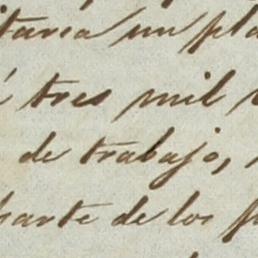 itaria un pla
tres mil
de trabajo,
parte de los